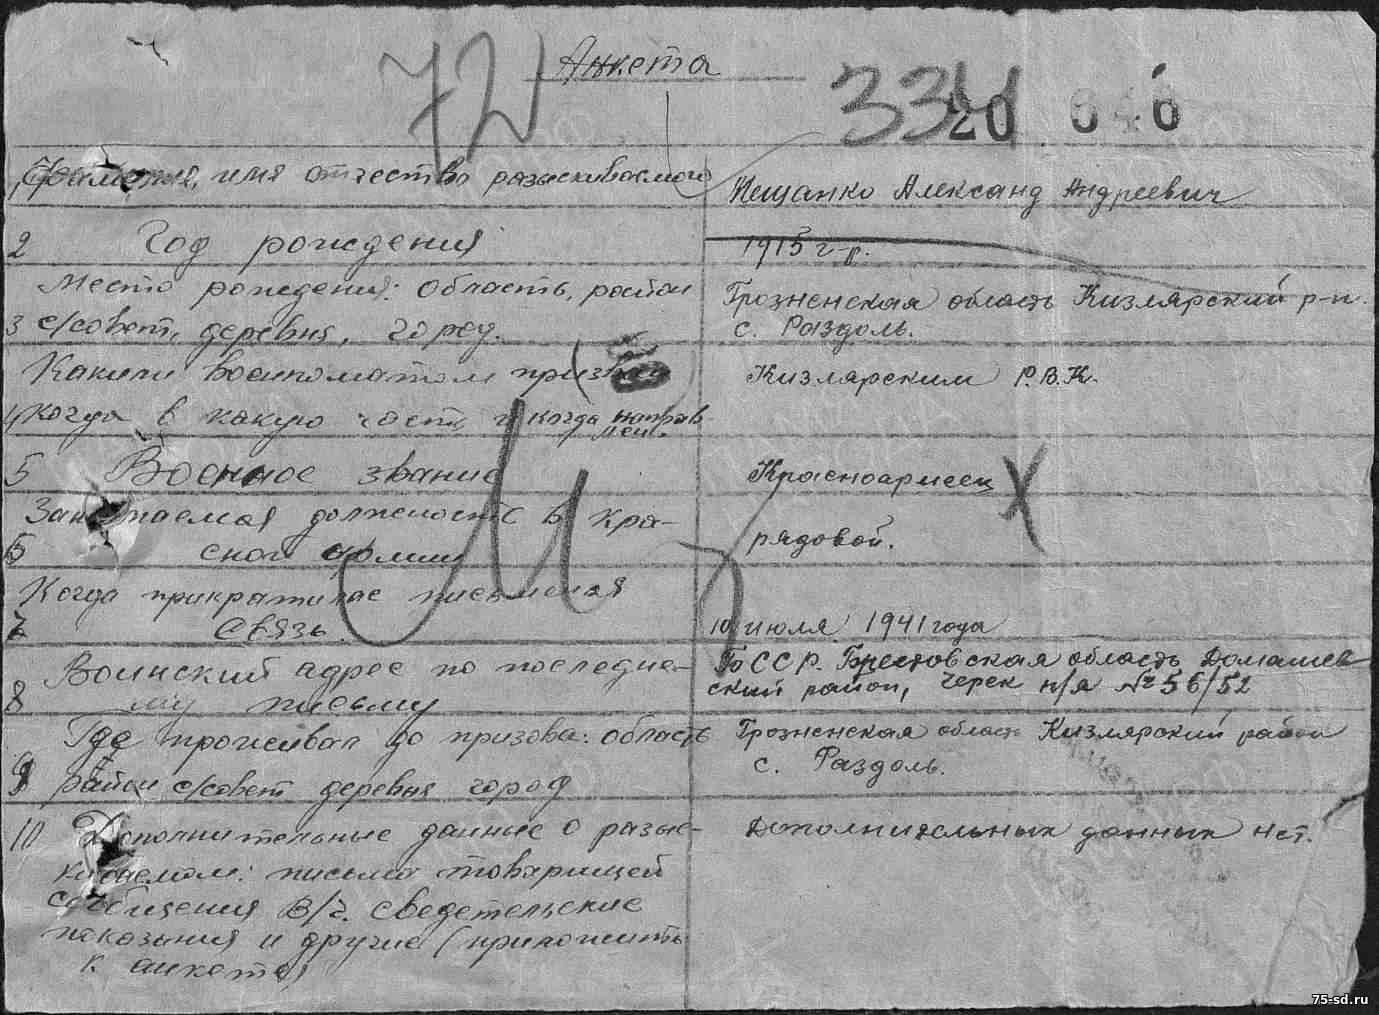 Анкета
72
334
20 646
1, Фамилия, имя отчество разыскиваемого
Тещанко Александ Андреевич
2 Год рождения
1915 г-р.
Место рождения: область, район
3 с/совет, деревня, город.
Грозненская область Кизлярский р-н.
с. Раздоль.
Каким военкоматом призван
4, когда в какую часть и когда направ
лен.
Кизлярским Р.В.К.
5 Военное звание
Красноармеец
Занимаемая должность в Кра-
6 сной армии
рядовой.
Когда прикратилас письменая
7 связь.
10 июля 1941 года
Воинский адрес по последне-
8 му письму
БССР. Брестовская область Домачев
ский район, Черск п/я № 56/52
Где проживал до призова: область
9 район с/совет деревня город
Грозненская област Кизлярский район
с. Раздоль.
10 Дополнительные данные о разыс-
киваемом: письма товарищей
сообщения в/ч. сведетельские
показания и другие (приложить
к анкете)
Дополнительных данных нет.
75-sd.ru